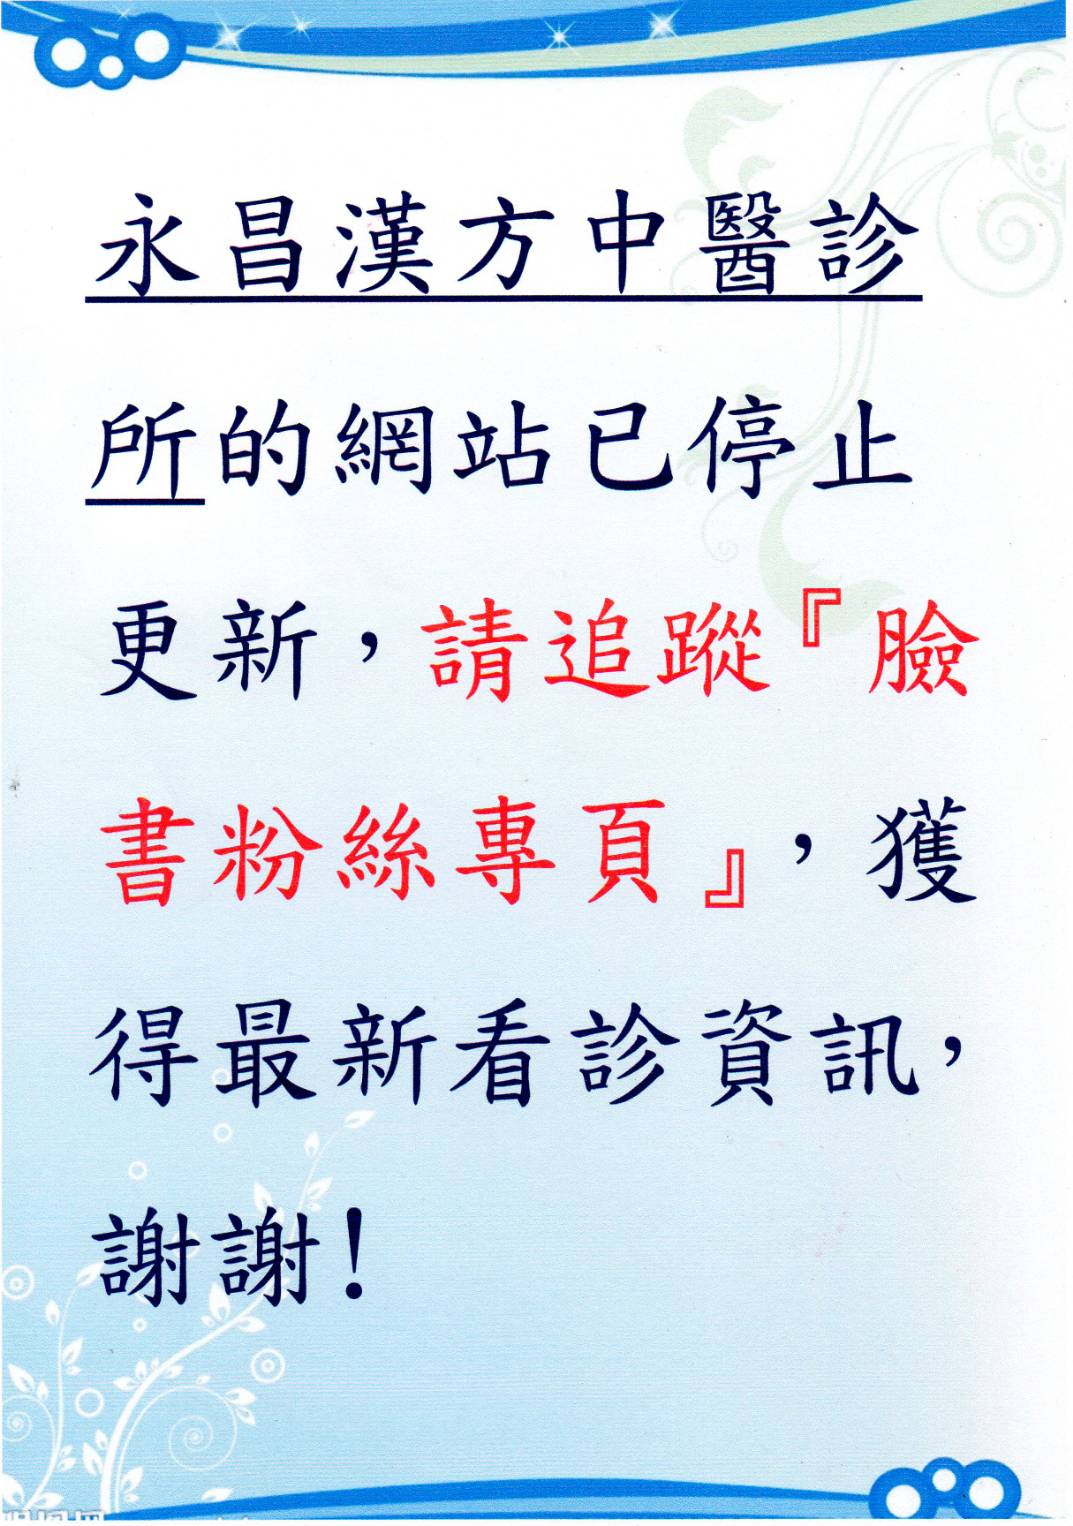 永昌漢方中醫診
所的網站已停止
更新，請追蹤『臉
書粉絲專頁』，獲
得最新看診資訊，
謝謝！